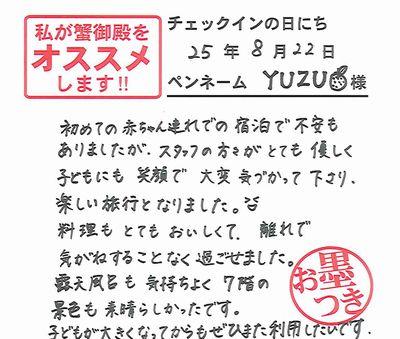 私が蟹御殿を
オススメ
します!!
チェックインの日にち
25年8月22日
ペンネーム YUZU様
初めての赤ちゃん連れでの宿泊で不安も
ありましたが、スタッフの方々がとても優しく
子どもにも笑顔で大変気づかって下さり、
楽しい旅行となりました。
料理もとてもおいしくて、離れで
気がねすることなく過ごせました。
露天風呂も気持ちよく7階の
景色も素晴らしかったです。
子どもが大きくなってからもぜひまた利用したいです。
お墨つき